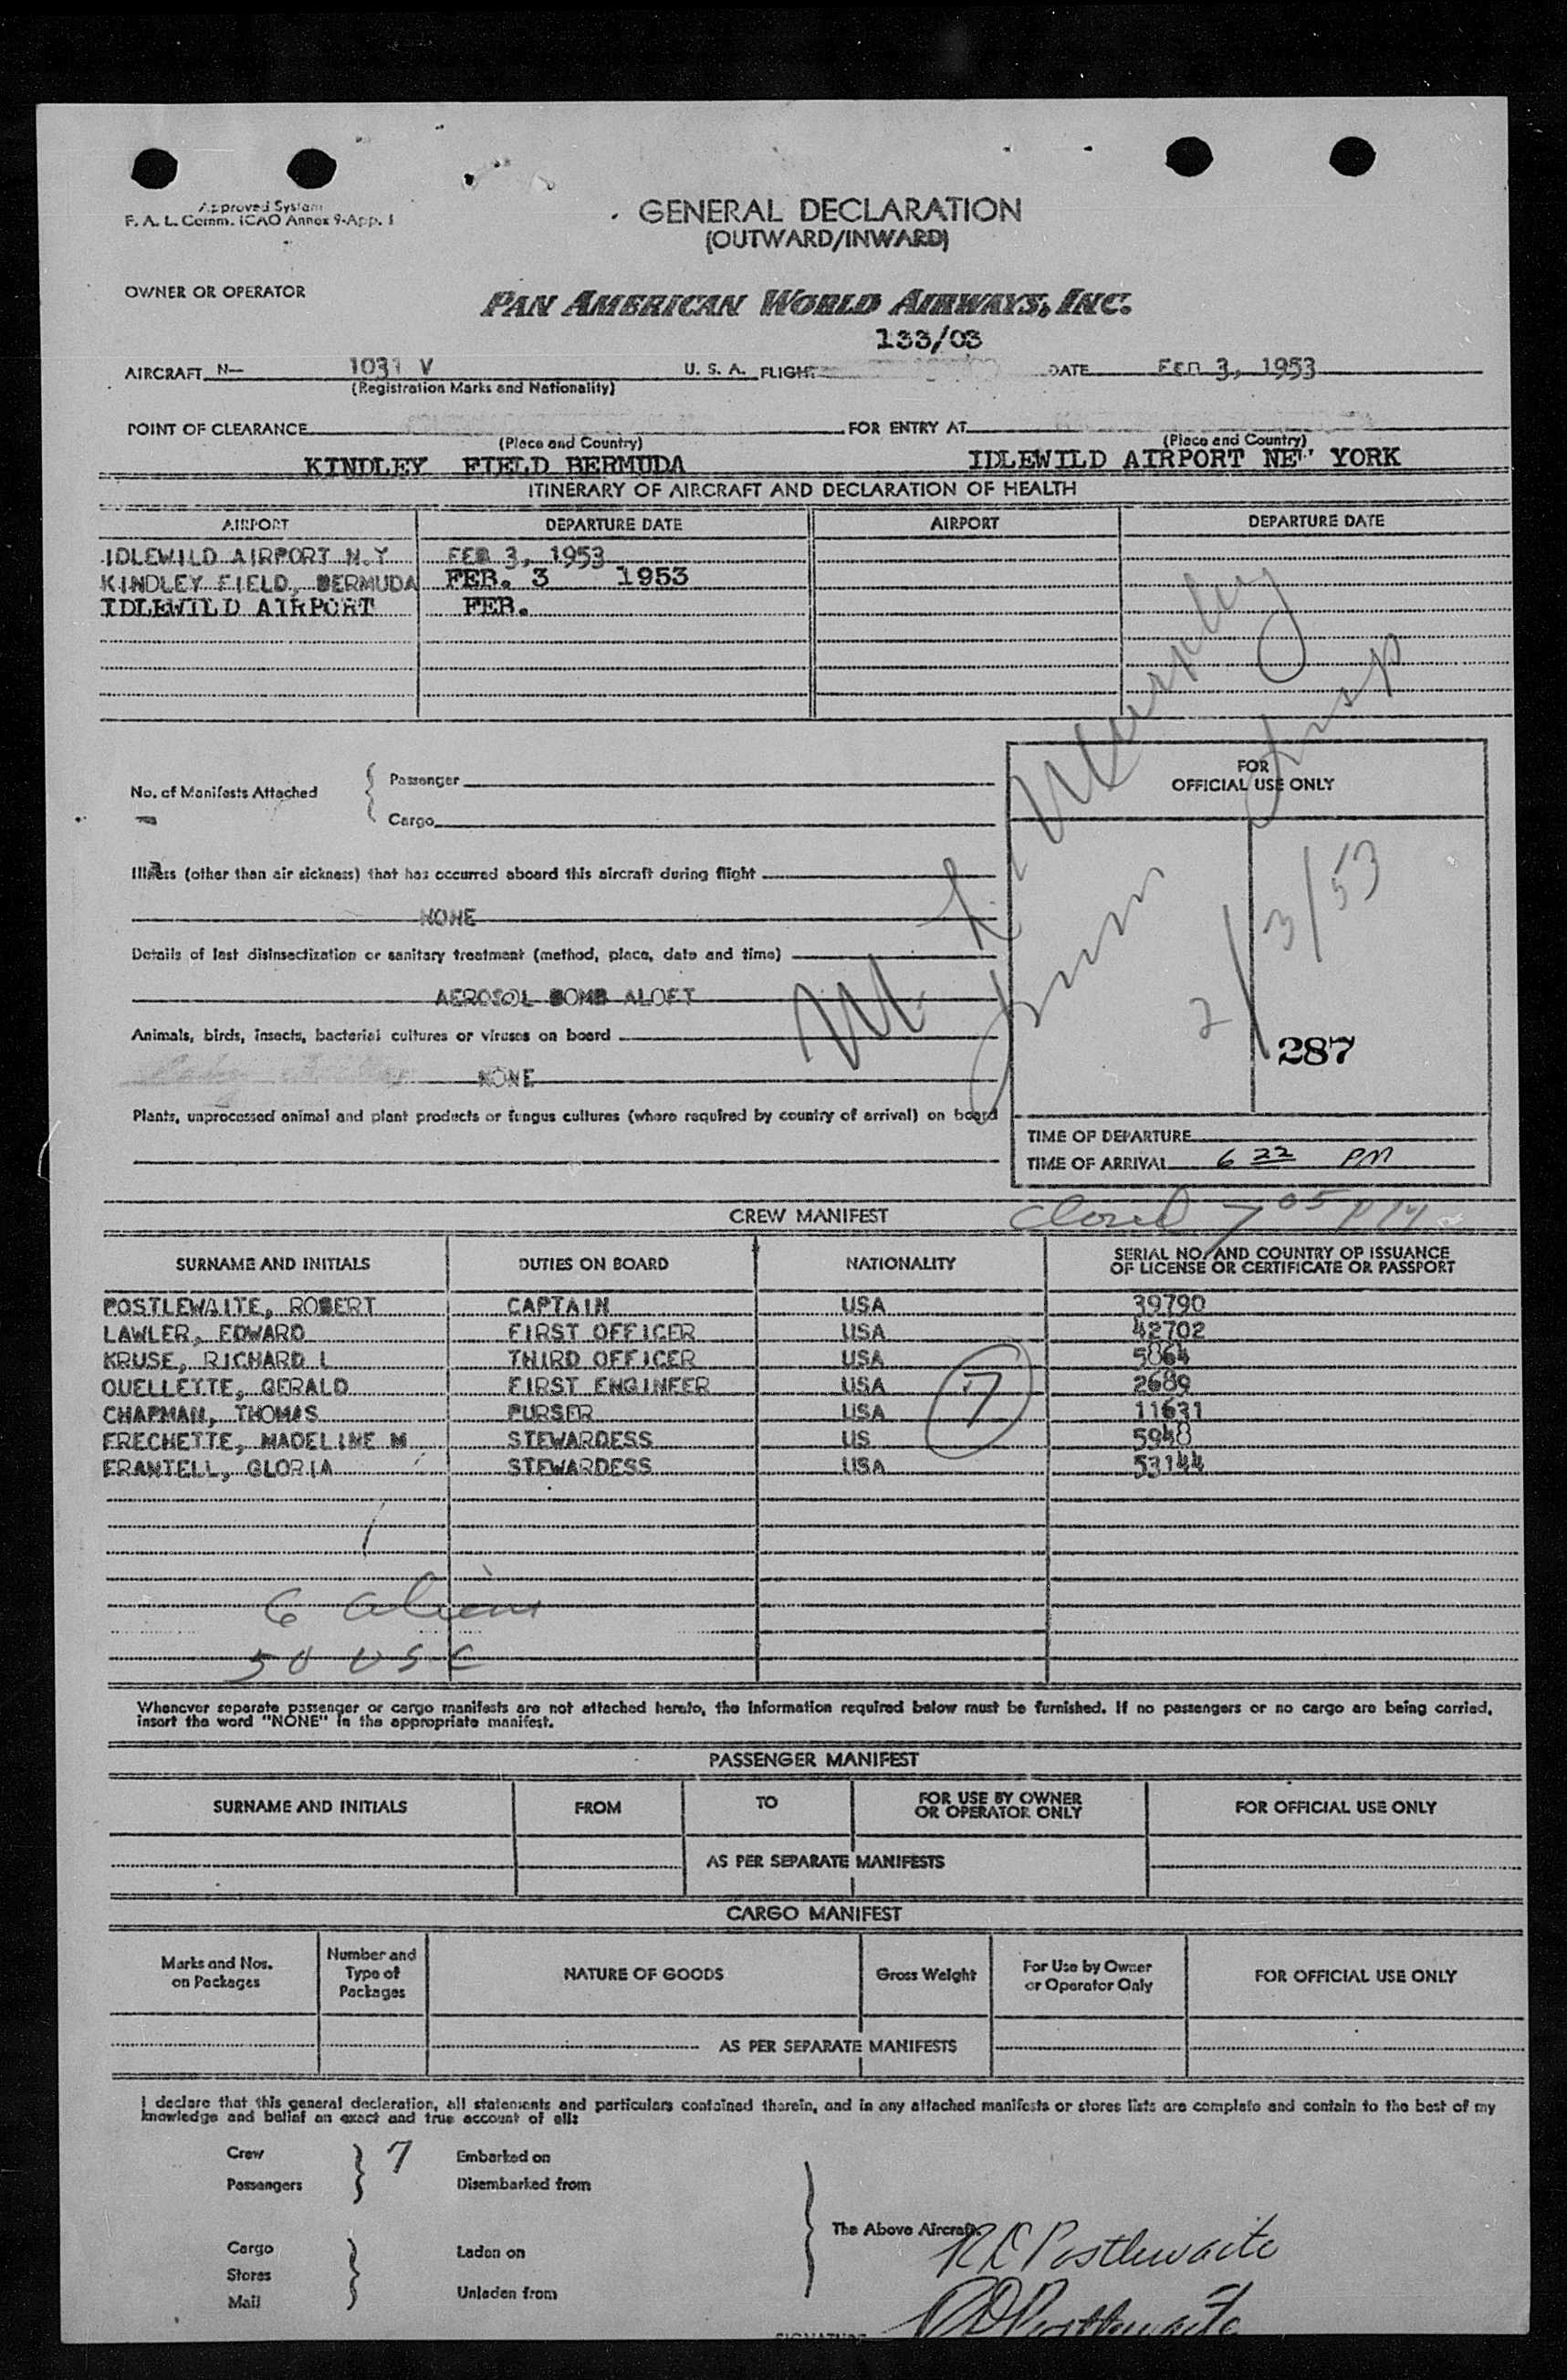 Approved System
F. A. L. Comm. ICAO Annex 9-App. 1
GENERAL DECLARATION
(OUTWARD/INWARD)
OWNER OR OPERATOR
PAN AMERICAN WORLD AIRWAYS, INC.
133/03
AIRCRAFT N- 1031 V U. S. A. FLIGHT DATE FEB 3, 1953
(Registration Marks and Nationality)
POINT OF CLEARANCE FOR ENTRY AT
(Place and Country) (Place and Country)
KINDLEY FIELD BERMUDA IDLEWILD AIRPORT NEW YORK
ITINERARY OF AIRCRAFT AND DECLARATION OF HEALTH
AIRPORT DEPARTURE DATE AIRPORT DEPARTURE DATE
IDLEWILD AIRPORT N.Y FEB 3, 1953
KINDLEY FIELD, BERMUDA FEB. 3 1953
IDLEWILD AIRPORT FEB.
No. of Manifests Attached
Passenger
Cargo
FOR
OFFICIAL USE ONLY
Illness (other than air sickness) that has occurred aboard this aircraft during flight
NONE
Details of last disinsectization or sanitary treatment (method, place, date and time)
AEROSOL BOMB ALOFT
Animals, birds, insects, bacterial cultures or viruses on board
NONE
Plants, unprocessed animal and plant products or fungus cultures (where required by country of arrival) on board
2/3/53
287
TIME OF DEPARTURE
TIME OF ARRIVAL 6 22 PM
Closed 7 05 PM
CREW MANIFEST
SURNAME AND INITIALS DUTIES ON BOARD NATIONALITY SERIAL NO. AND COUNTRY OF ISSUANCE
OF LICENSE OR CERTIFICATE OR PASSPORT
POSTLEWAITE, ROBERT CAPTAIN USA 39790
LAWLER, EDWARD FIRST OFFICER USA 42702
KRUSE, RICHARD L THIRD OFFICER USA 5864
OUELLETTE, GERALD FIRST ENGINEER USA 2689
CHAPMAN, THOMAS PURSER USA 11631
FRECHETTE, MADELINE M STEWARDESS US 5948
FRANTELL, GLORIA STEWARDESS USA 53144
7
6 aliens
50 USC
Whenever separate passenger or cargo manifests are not attached hereto, the information required below must be furnished. If no passengers or no cargo are being carried,
insert the word "NONE" in the appropriate manifest.
PASSENGER MANIFEST
SURNAME AND INITIALS FROM TO FOR USE BY OWNER
OR OPERATOR ONLY FOR OFFICIAL USE ONLY
AS PER SEPARATE MANIFESTS
CARGO MANIFEST
Marks and Nos.
on Packages
Number and
Type of
Packages
NATURE OF GOODS Gross Weight
For Use by Owner
or Operator Only
FOR OFFICIAL USE ONLY
AS PER SEPARATE MANIFESTS
I declare that this general declaration, all statements and particulars contained therein, and in any attached manifests or stores lists are complete and contain to the best of my
knowledge and belief an exact and true account of all:
Crew 7 Embarked on
Passengers Disembarked from
The Above Aircraft.
R D Postlewaite
Cargo Laden on
Stores
Mail Unladen from
R D Postlewaite
SIGNATURE